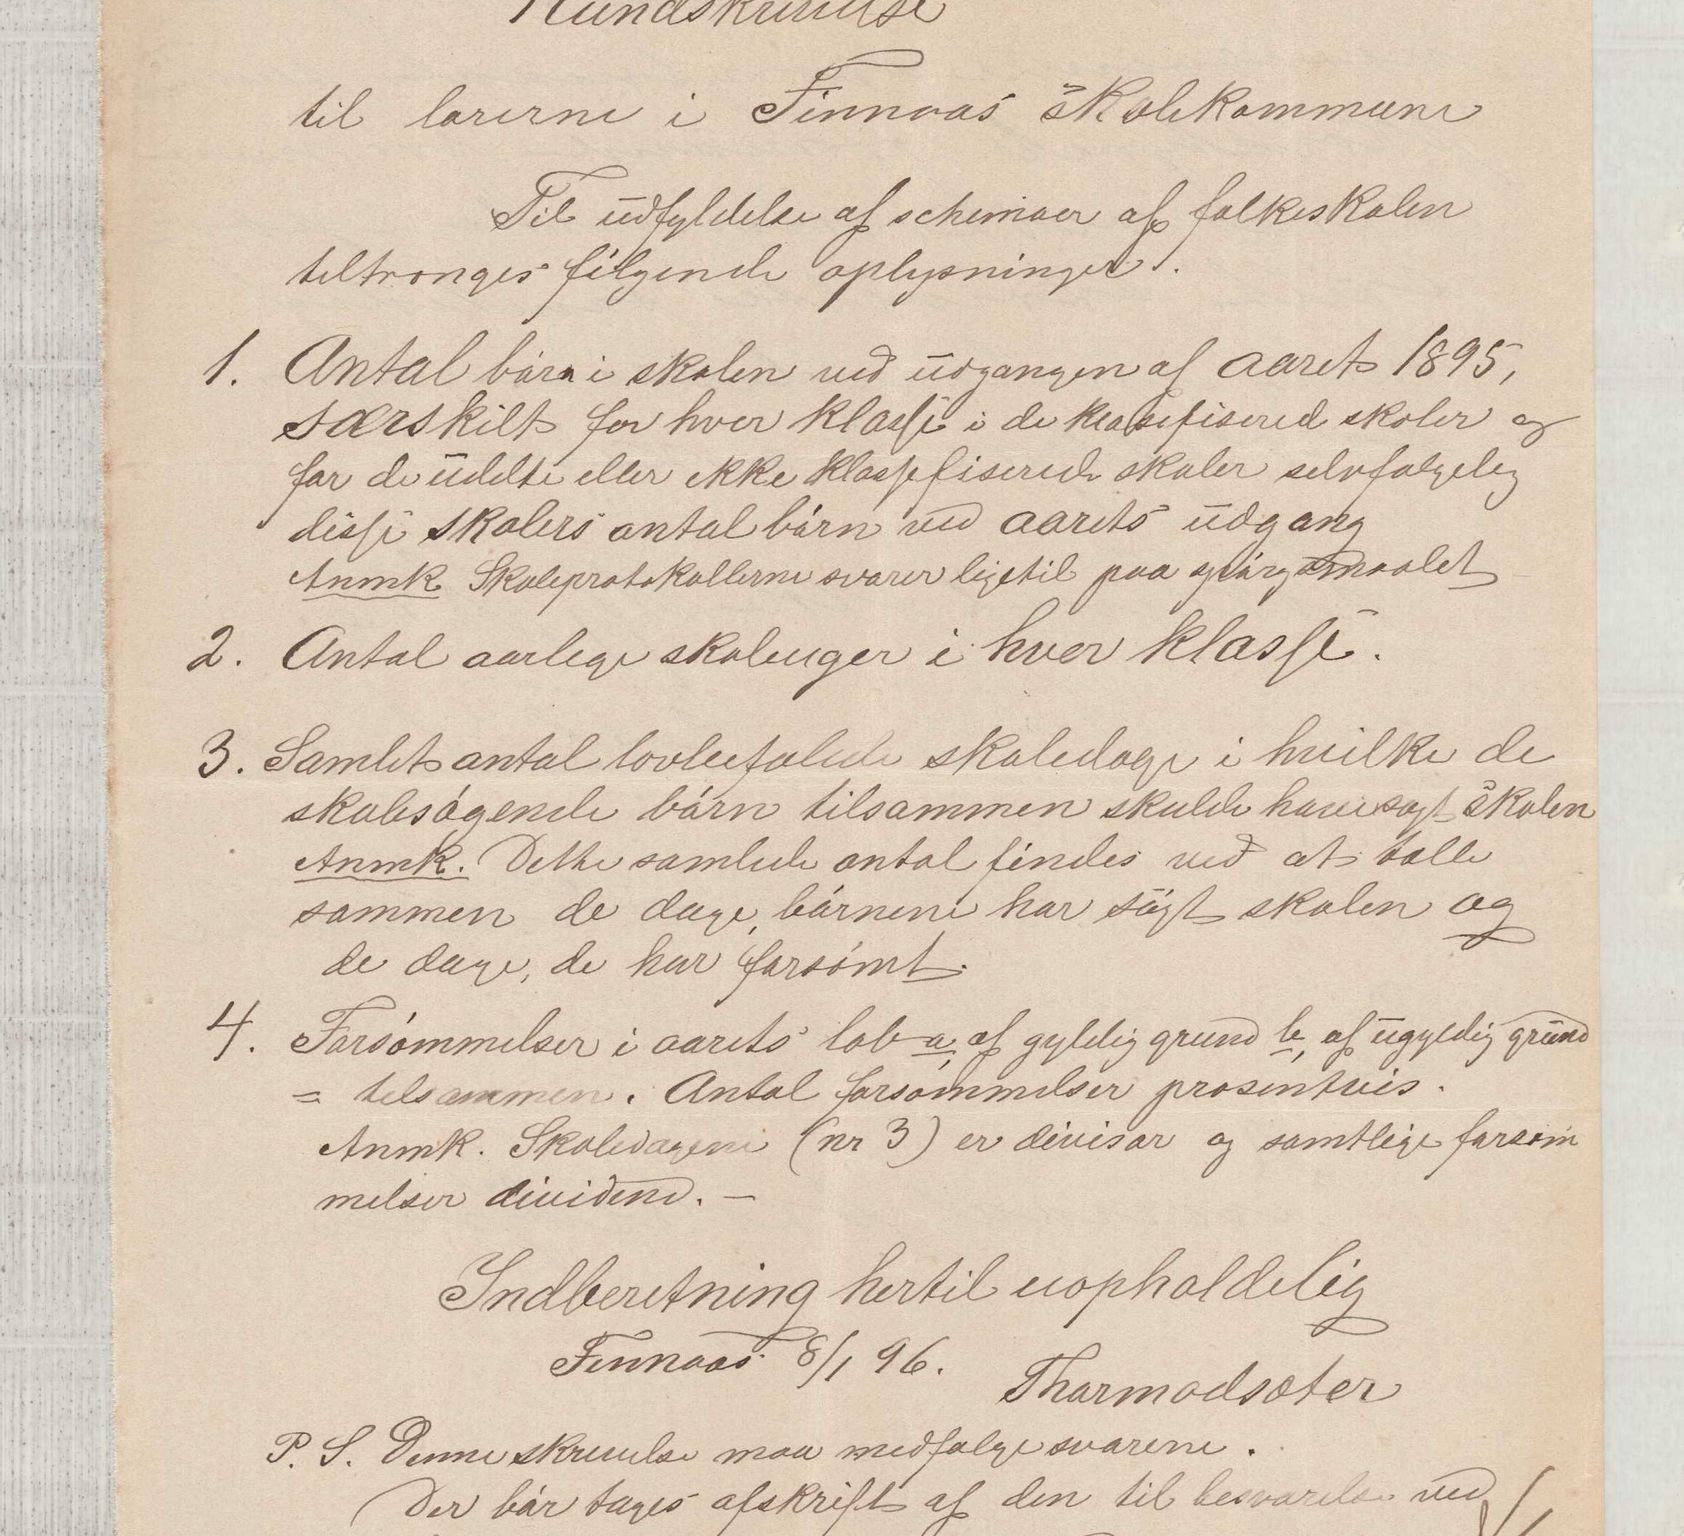 Rundskrivelse
til lærerne i Finnaas skolekommune
Til udfyldelse af schemaer af folkeskolen
tiltrænges følgende oplysninger.
1. Antal børn i skolen ved udgangen af aaret 1895,
særskilt for hver klasse i de klassefiserede skoler og
for de udelte eller ikke klassefiserede skoler selvfølgelig
disse skolers antal børn ved aarets udgang
Anmk. Skoleprotokollerne svarer ligetil paa spørgsmaalet
2. Antal aarlige skoleuger i hver klasse.
3. Samlet antal lovbefalede skoledage i hvilke de
skolesøgende børn tilsammen skulde have søgt skolen
Anmk. Dette samlede antal findes ved at tælle
sammen de dage, børnene har søgt skolen og
de dage, de har forsømt.
4. Forsømmelser i aarets løb a, af gyldig grund b, af ugyldig grund
= tilsammen. Antal forsømmelser prosentvis.
Anmk. Skoledagene (nr 3) er divisor og samtlige forsøm
melser dividend. —
Indberetning hertil uopholdelig
Finnaas 8/1 96.
Thormodsæter
P. S. Denne skrivelse maa medfølge svarene.
Der bør tages afskrift af den til besvarelse ved